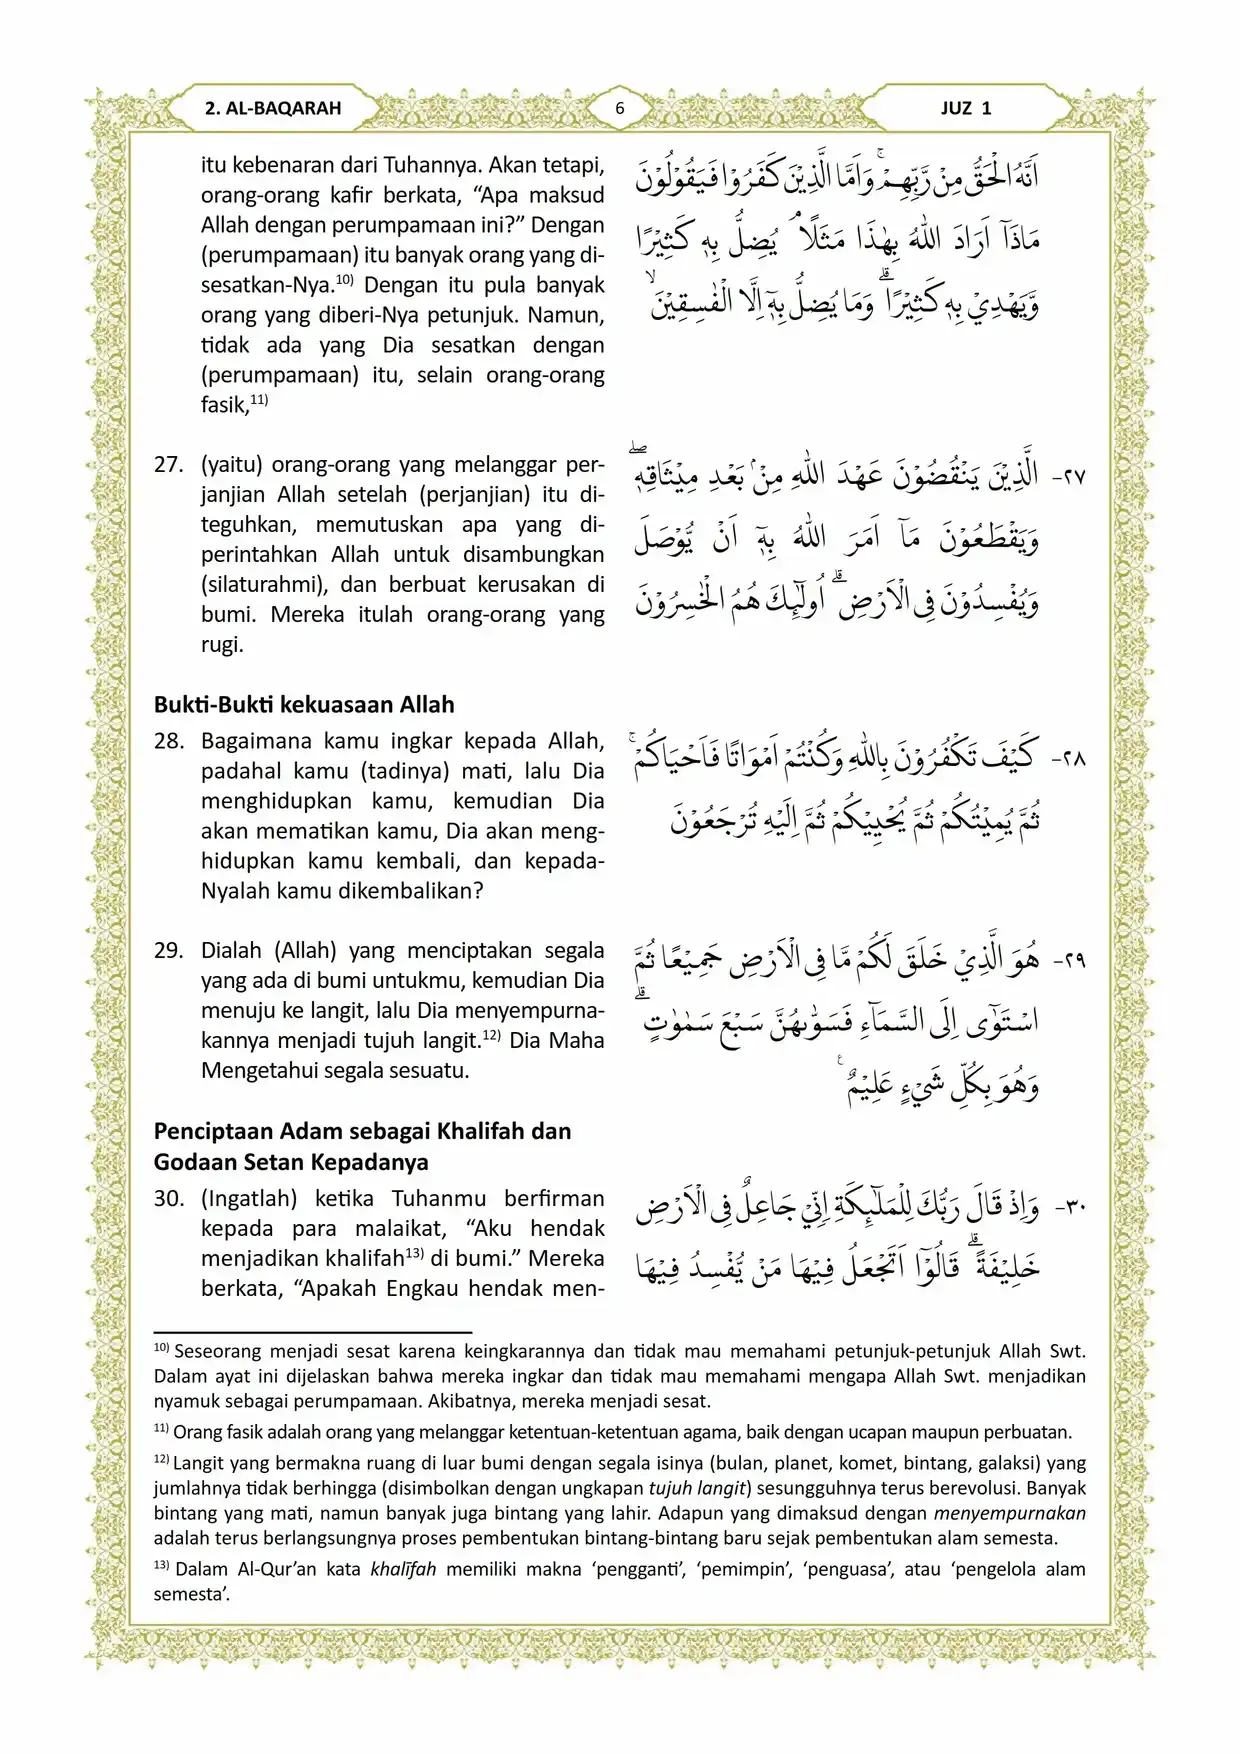 2. AL-BAQARAH
6
JUZ 1
itu kebenaran dari Tuhannya. Akan tetapi,
orang-orang kafir berkata, “Apa maksud
Allah dengan perumpamaan ini?” Dengan
(perumpamaan) itu banyak orang yang di-
sesatkan-Nya.10) Dengan itu pula banyak
orang yang diberi-Nya petunjuk. Namun,
tidak ada yang Dia sesatkan dengan
(perumpamaan) itu, selain orang-orang
fasik,11)
اَنَّهُ الْحَقُّ مِنْ رَّبِّهِمْۚ وَاَمَّا الَّذِيْنَ كَفَرُوْا فَيَقُوْلُوْنَ
مَاذَآ اَرَادَ اللّٰهُ بِهٰذَا مَثَلًاۘ يُضِلُّ بِهٖ كَثِيْرًا
وَّيَهْدِيْ بِهٖ كَثِيْرًاۗ وَمَا يُضِلُّ بِهٖٓ اِلَّا الْفٰسِقِيْنَۙ
27. (yaitu) orang-orang yang melanggar per-
janjian Allah setelah (perjanjian) itu di-
teguhkan, memutuskan apa yang di-
perintahkan Allah untuk disambungkan
(silaturahmi), dan berbuat kerusakan di
bumi. Mereka itulah orang-orang yang
rugi.
٢٧- الَّذِيْنَ يَنْقُضُوْنَ عَهْدَ اللّٰهِ مِنْۢ بَعْدِ مِيْثَاقِهٖۖ
وَيَقْطَعُوْنَ مَآ اَمَرَ اللّٰهُ بِهٖٓ اَنْ يُّوْصَلَ
وَيُفْسِدُوْنَ فِى الْاَرْضِۗ اُولٰۤىِٕكَ هُمُ الْخٰسِرُوْنَ
Bukti-Bukti kekuasaan Allah
28. Bagaimana kamu ingkar kepada Allah,
padahal kamu (tadinya) mati, lalu Dia
menghidupkan kamu, kemudian Dia
akan mematikan kamu, Dia akan meng-
hidupkan kamu kembali, dan kepada-
Nyalah kamu dikembalikan?
٢٨- كَيْفَ تَكْفُرُوْنَ بِاللّٰهِ وَكُنْتُمْ اَمْوَاتًا فَاَحْيَاكُمْۚ
ثُمَّ يُمِيْتُكُمْ ثُمَّ يُحْيِيْكُمْ ثُمَّ اِلَيْهِ تُرْجَعُوْنَ
29. Dialah (Allah) yang menciptakan segala
yang ada di bumi untukmu, kemudian Dia
menuju ke langit, lalu Dia menyempurna-
kannya menjadi tujuh langit.12) Dia Maha
Mengetahui segala sesuatu.
٢٩- هُوَ الَّذِيْ خَلَقَ لَكُمْ مَّا فِى الْاَرْضِ جَمِيْعًا ثُمَّ
اسْتَوٰٓى اِلَى السَّمَاۤءِ فَسَوّٰىهُنَّ سَبْعَ سَمٰوٰتٍۗ
وَهُوَ بِكُلِّ شَيْءٍ عَلِيْمٌ ࣖ
Penciptaan Adam sebagai Khalifah dan
Godaan Setan Kepadanya
30. (Ingatlah) ketika Tuhanmu berfirman
kepada para malaikat, “Aku hendak
menjadikan khalifah13) di bumi.” Mereka
berkata, “Apakah Engkau hendak men-
٣٠- وَاِذْ قَالَ رَبُّكَ لِلْمَلٰۤىِٕكَةِ اِنِّيْ جَاعِلٌ فِى الْاَرْضِ
خَلِيْفَةًۗ قَالُوْٓا اَتَجْعَلُ فِيْهَا مَنْ يُّفْسِدُ فِيْهَا
10) Seseorang menjadi sesat karena keingkarannya dan tidak mau memahami petunjuk-petunjuk Allah Swt.
Dalam ayat ini dijelaskan bahwa mereka ingkar dan tidak mau memahami mengapa Allah Swt. menjadikan
nyamuk sebagai perumpamaan. Akibatnya, mereka menjadi sesat.
11) Orang fasik adalah orang yang melanggar ketentuan-ketentuan agama, baik dengan ucapan maupun perbuatan.
12) Langit yang bermakna ruang di luar bumi dengan segala isinya (bulan, planet, komet, bintang, galaksi) yang
jumlahnya tidak berhingga (disimbolkan dengan ungkapan tujuh langit) sesungguhnya terus berevolusi. Banyak
bintang yang mati, namun banyak juga bintang yang lahir. Adapun yang dimaksud dengan menyempurnakan
adalah terus berlangsungnya proses pembentukan bintang-bintang baru sejak pembentukan alam semesta.
13) Dalam Al-Qur’an kata khalīfah memiliki makna ‘pengganti’, ‘pemimpin’, ‘penguasa’, atau ‘pengelola alam
semesta’.